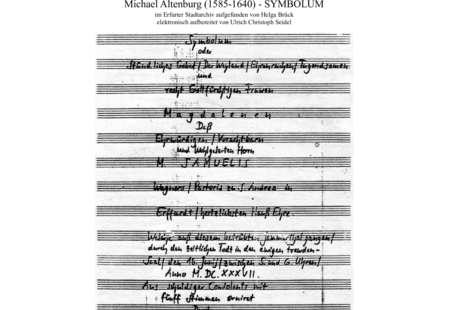 Michael Altenburg (1585-1640) - SYMBOLUM
im Erfurter Stadtarchiv aufgefunden von Helga Brück
elektronisch aufbereitet von Ulrich Christoph Seidel
Symbolum
oder
Stündliches Gebet / Der Weyland / Ehrenreichen / Tugendsamen
und
recht Gottfürchtigen Frawen
Magdalenen
Deß
Ehrwürdigen / Vorachtbarn
und Wohlgelerten Herrn
M. SAMUELIS
Wagners / Pastoris zu S. Andrea in
Erffurdt / hertzliebsten Hauß Ehre.
Welche auß diesem betrübten jammerthal gangen /
durch den zeitlichen Todt in den ewigen frewden-
Saal / den 16. Junij / zwischen 5. und 6. Uhren /
Anno M. DC. XXXVII.
Aus schuldiger Condolentz mit
fünff Stimmen